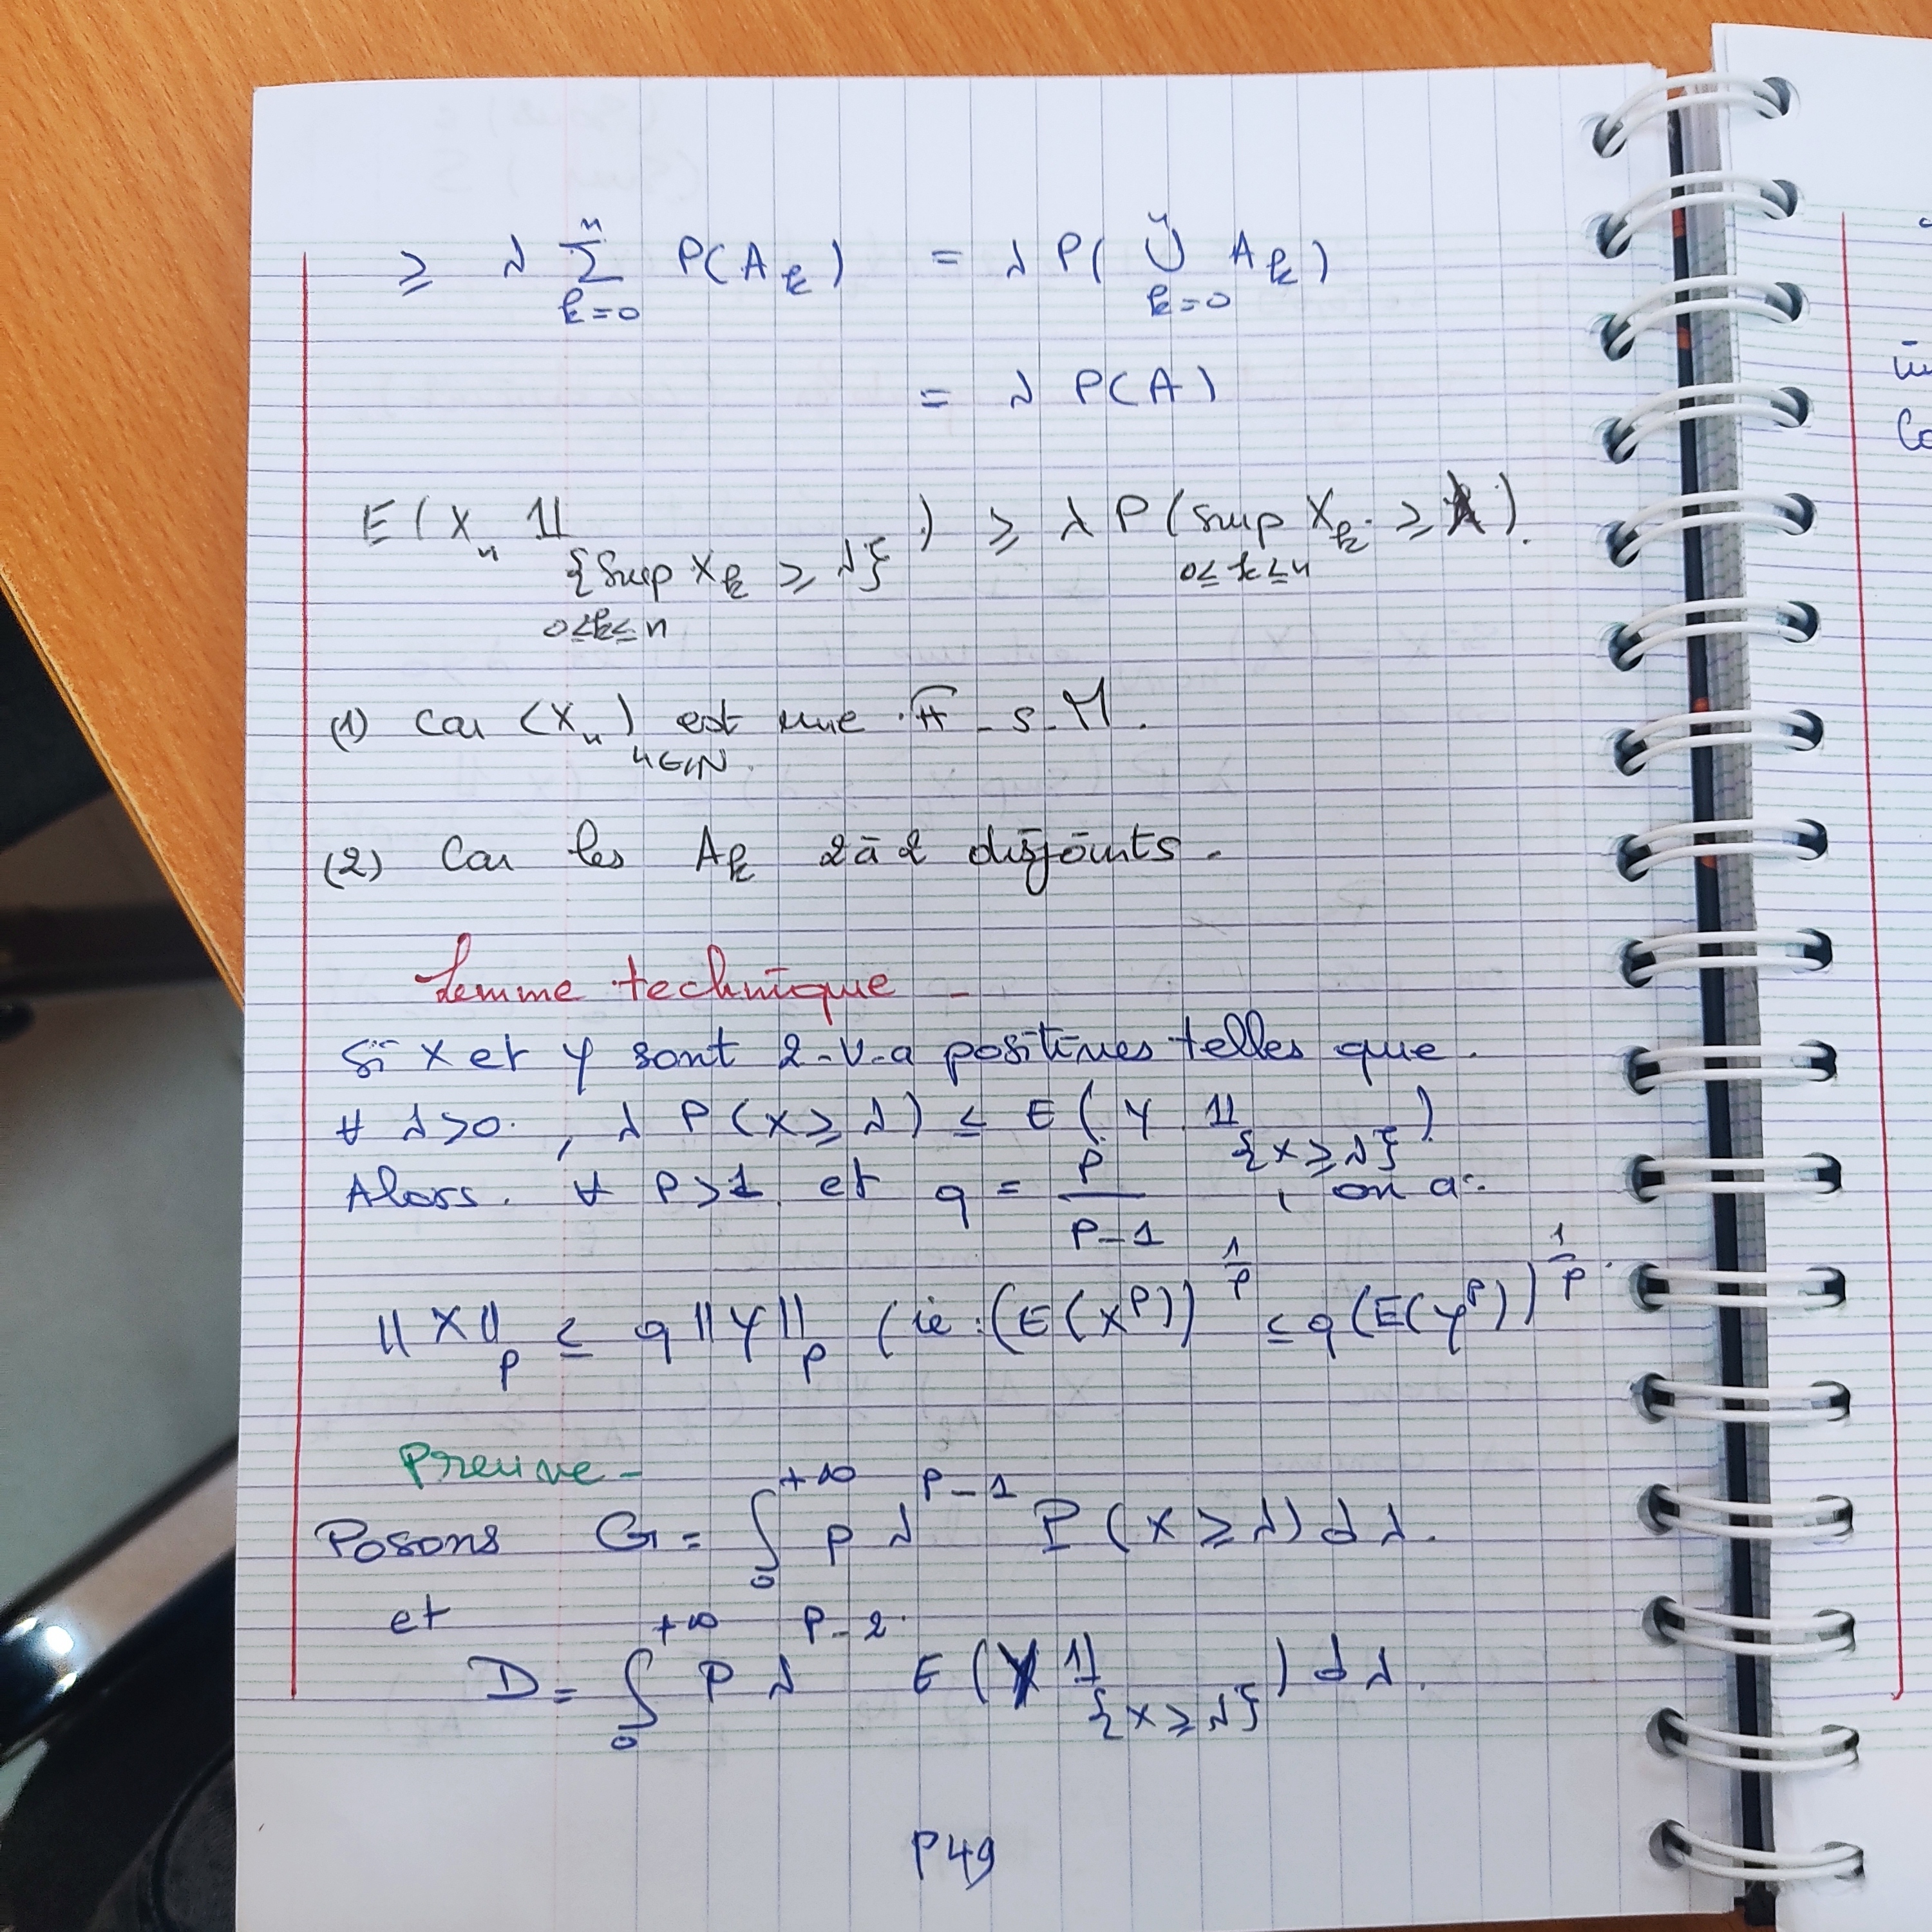 ≥ λ Σ_{k=0}^{n} P(A_k) = λ P( ∪_{k=0}^{n} A_k )
= λ P(A)
E(X_n 𝟙_{{sup_{0≤k≤n} X_k ≥ λ}}) ≥ λ P(sup_{0≤k≤n} X_k ≥ λ).
(1) Car (X_n)_{n∈ℕ} est une 𝔽-s-M.
(2) Car les A_k 2 à 2 disjoints.
Lemme technique -
Si X et Y sont 2-v-a positives telles que
∀ λ>0, λ P(X≥λ) ≤ E(Y 𝟙_{{X≥λ}})
Alors ∀ p>1 et q = p/(p-1), on a:
||X||_p ≤ q||Y||_p (ie: (E(X^p))^{1/p} ≤ q(E(Y^p))^{1/p}
Preuve -
Posons G = ∫_0^{+∞} p λ^{p-1} P(X≥λ) dλ.
et
D = ∫_0^{+∞} p λ^{p-2} E(Y 𝟙_{{X≥λ}}) dλ.
P49